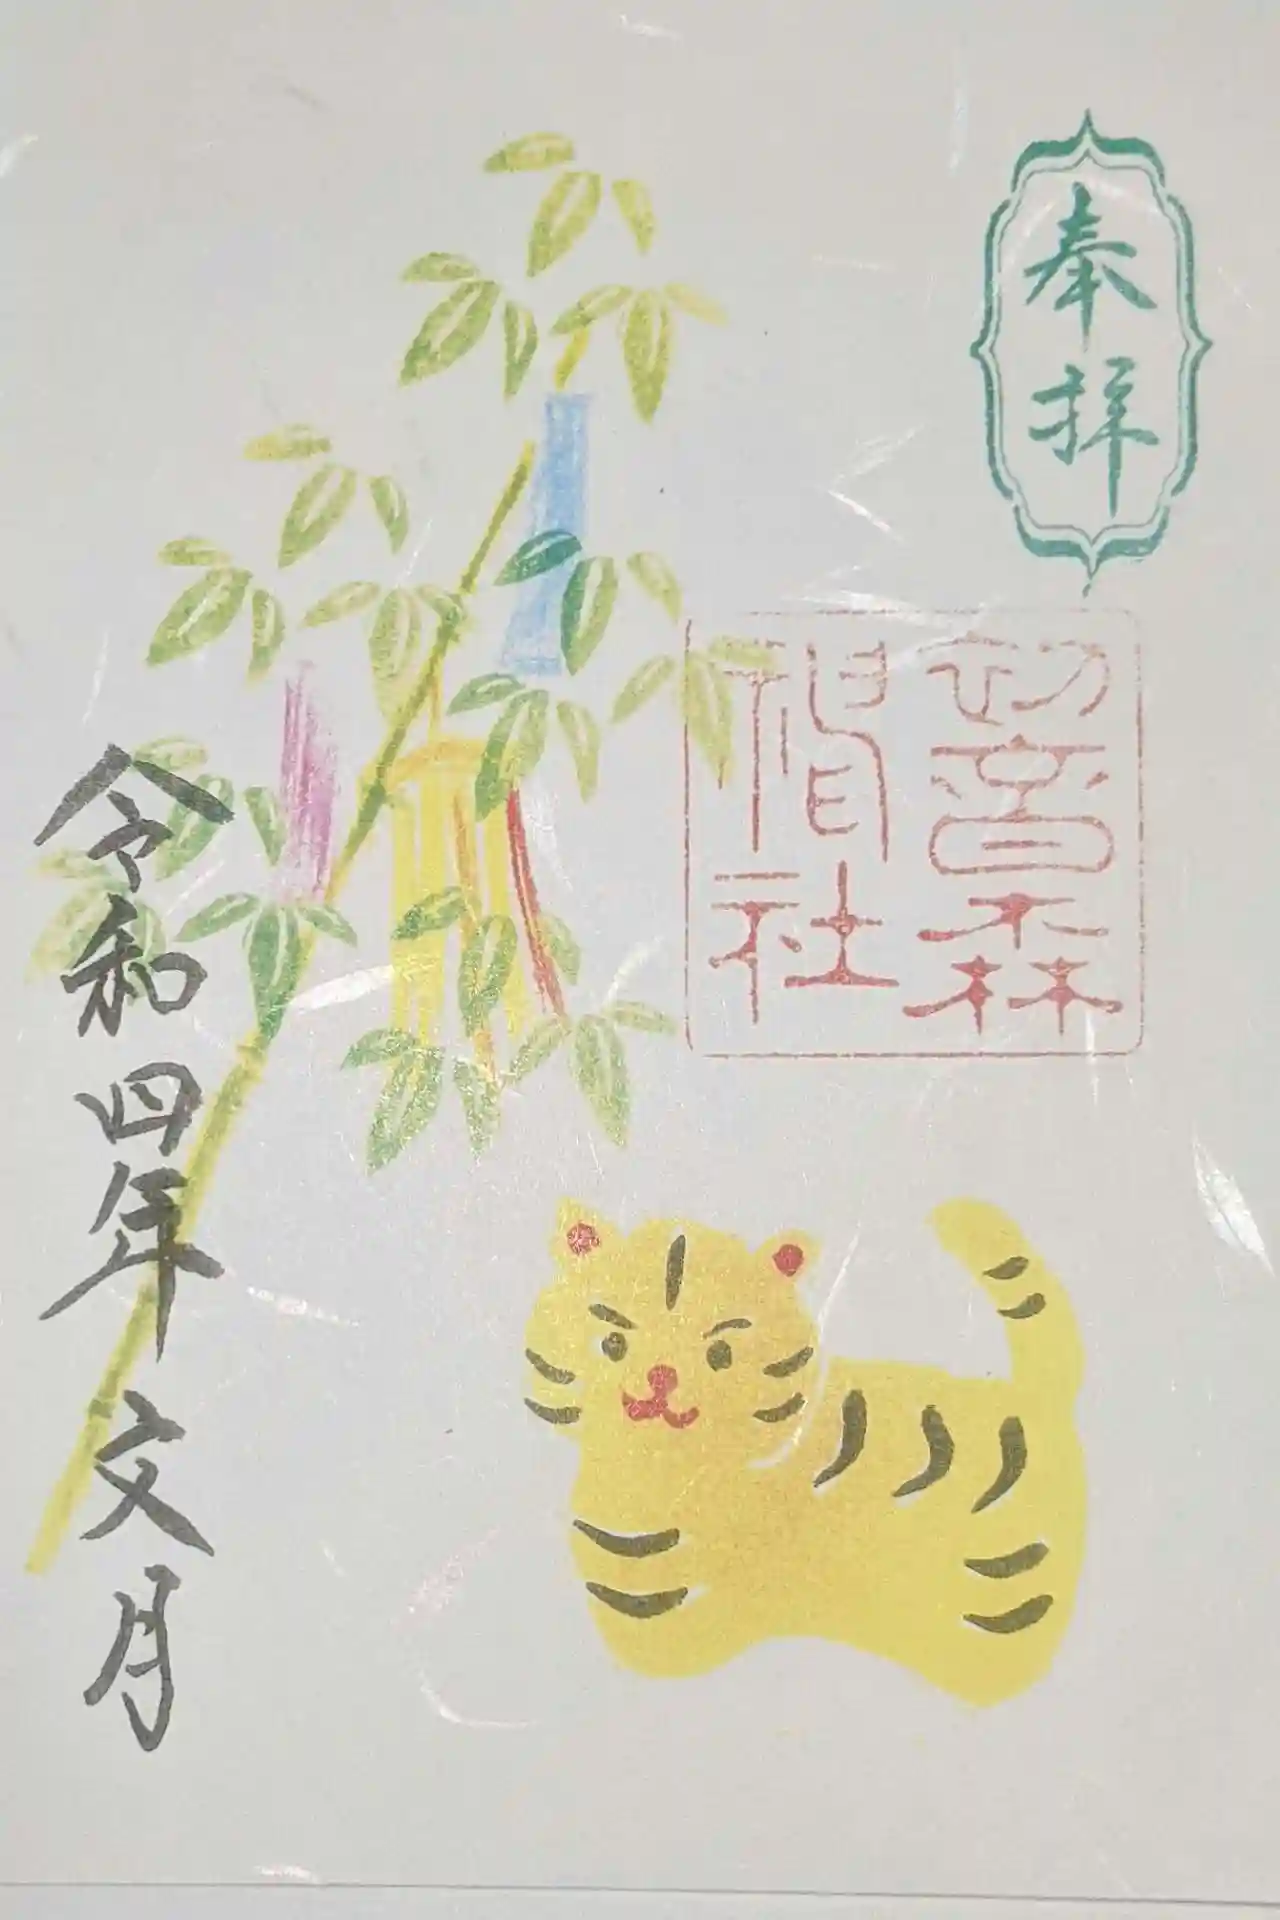 奉拝
初音森
神社
令和四年文月